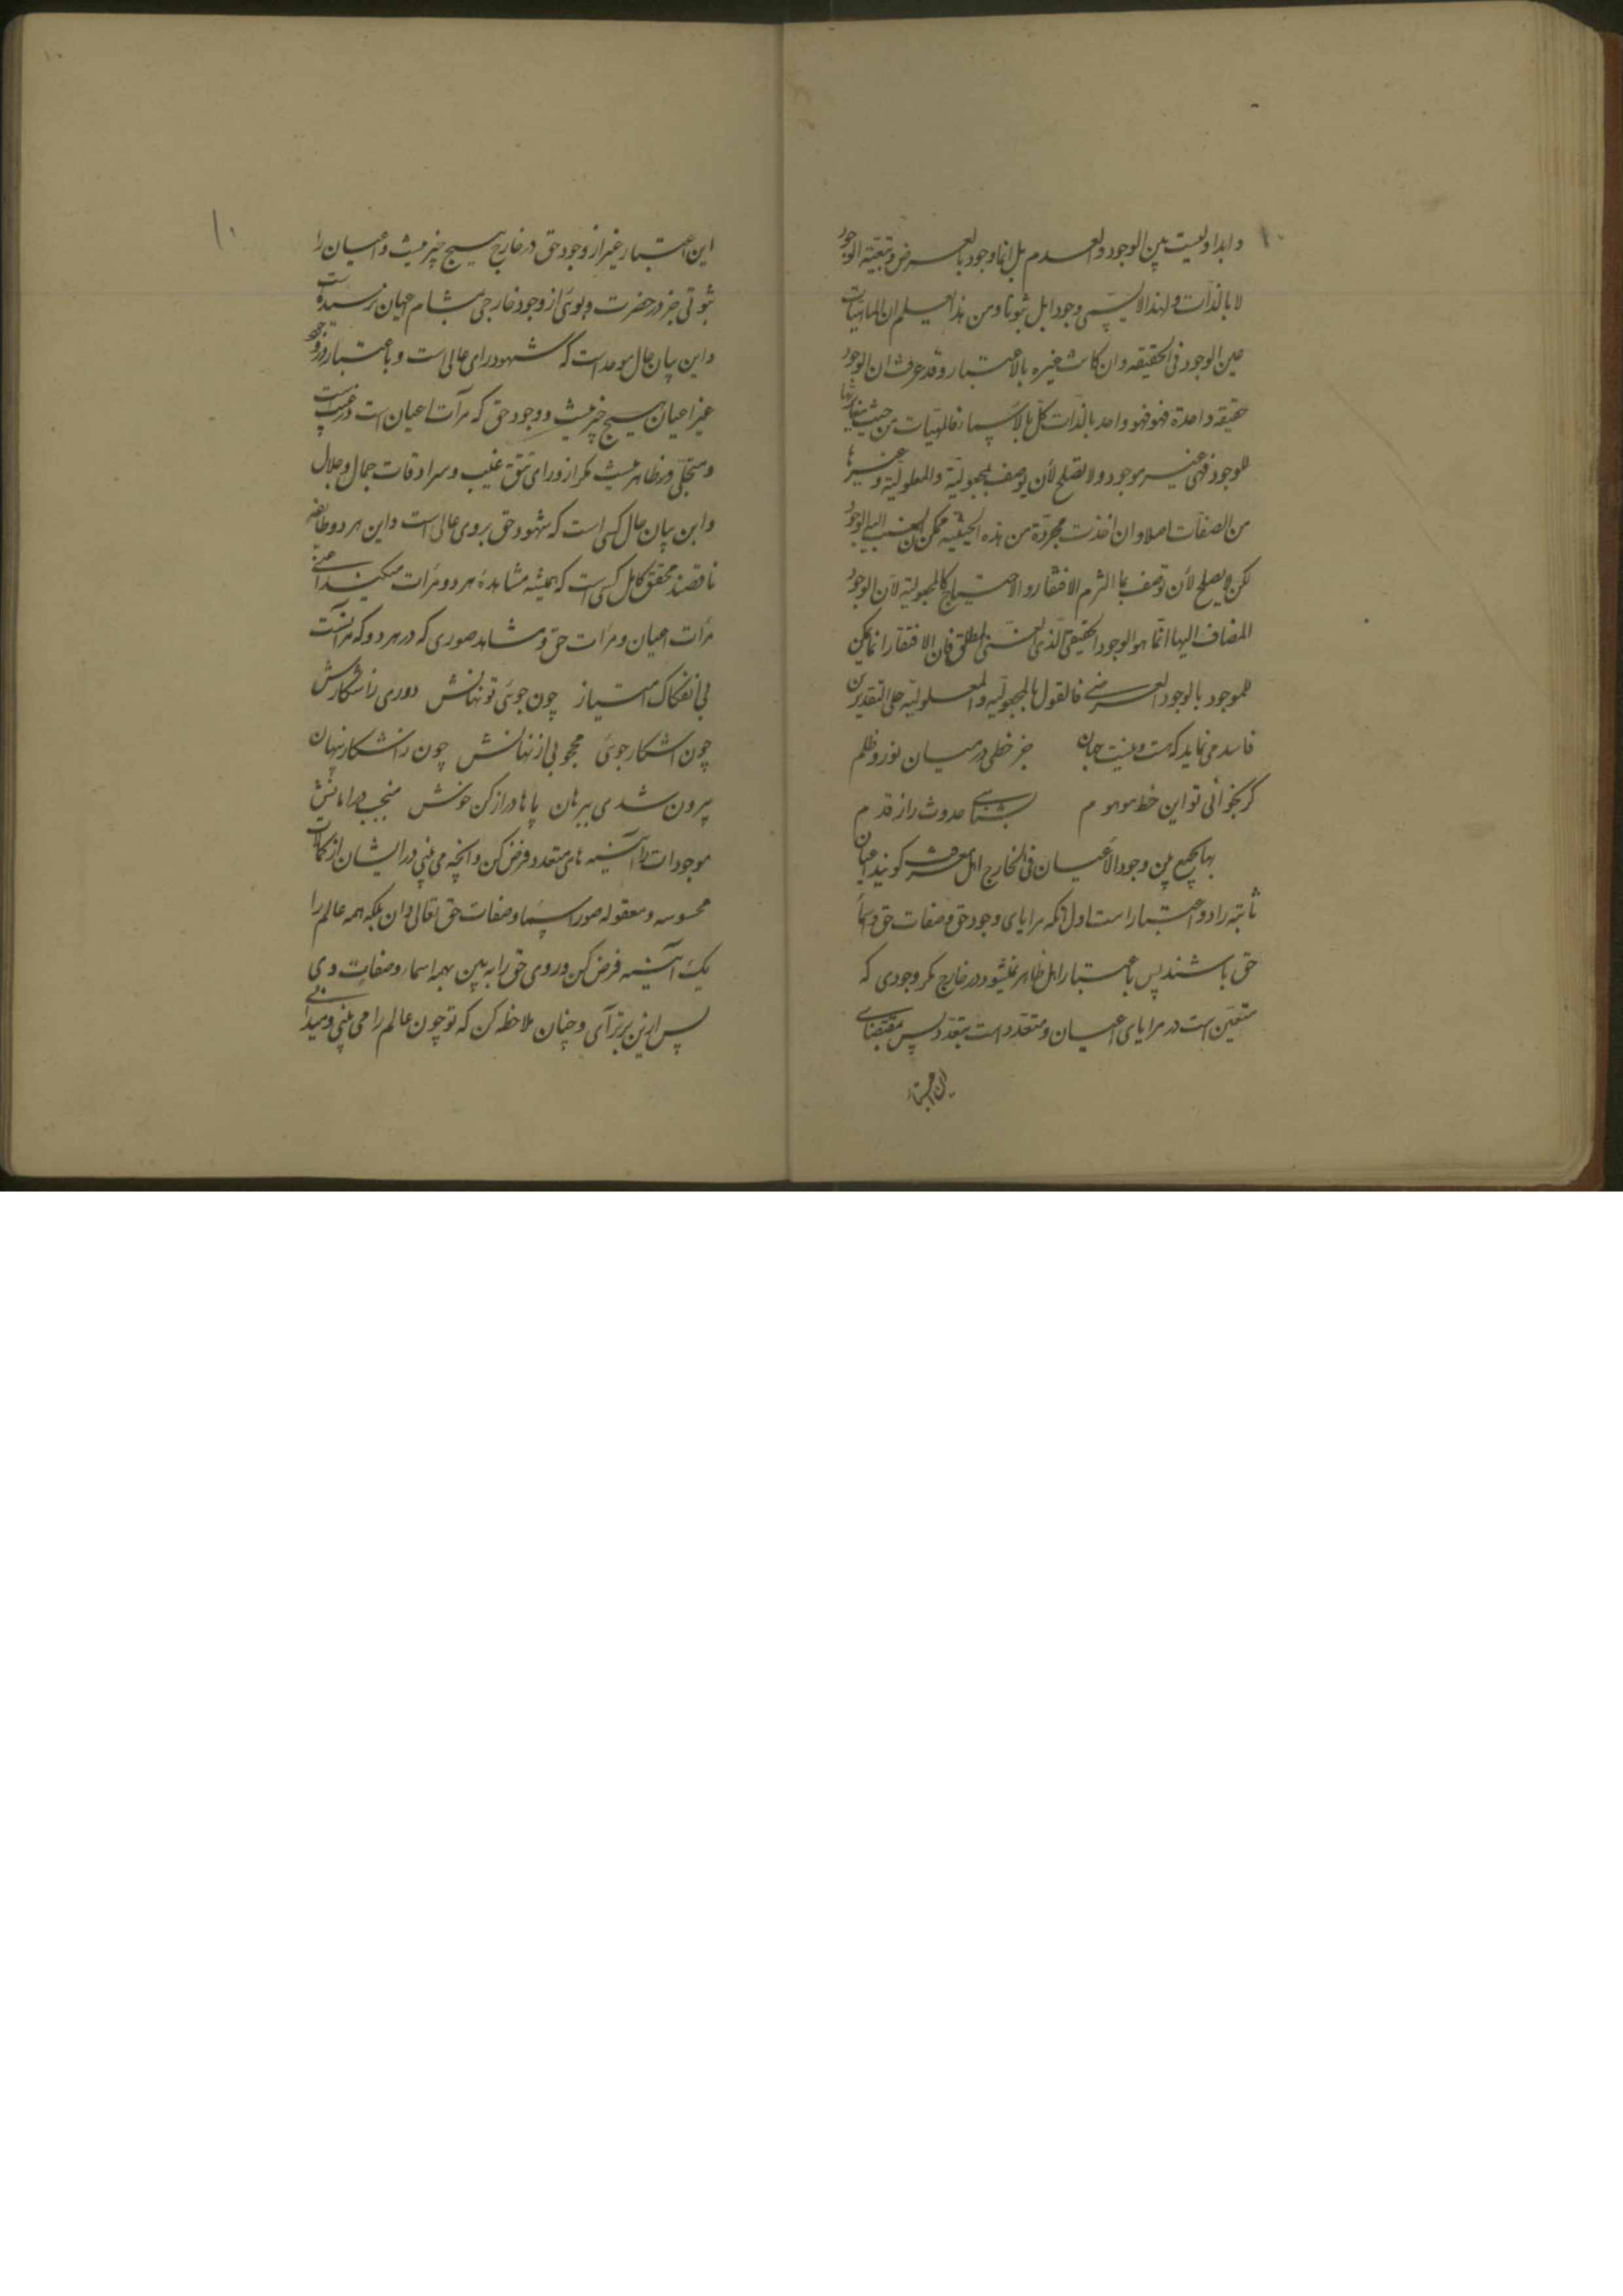 ۱۰
و ابدا و لیست بین الوجود و العدم بل انما وجود بالعرض و تبعیة الوجود
لا بالذات و لهذا لا یسمی وجودا بل ثبوتا و من هذا یعلم ان الماهیات
عین الوجود فی الحقیقه و ان کانت غیره بالاعتبار و قد عرفت ان الوجود
حقیقه واحدة فهو فهو واحد بالذات کل بالاسماء فالمهیات من حیث مغایرتها
للوجود فهی غیر موجود و لا تصلح لأن یوصف بالمجعولیة و المعلولیة و غیرها
من الصفات اصلا و ان اخذت مجردة من هذه الحیثیه ممکن ان ینسب الیها الوجود
لکن لا یصلح لأن توصف بما الثرم الافتقار و الاحتیاج کالمجعولیة لأن الوجود
المضاف الیها انما هو الوجود الحقیقی الذی الغنی المطلق فان الافتقار انما یمکن
للموجود بالوجود العرضی فالقول بالمجعولیه و المعلولیه علی التقدیرین
فاسد می نماید که هست و نیست جهان جز خطی در میان نور و ظلم
گر بخوانی تو این خط موهوم بشناسی حدوث را ز قدم
بها یجمع بین وجود الاعیان فی الخارج اهل معرفت گویند اعیان
ثابته را دو اعتبار است اول آنکه مرایای وجود حق و صفات حق و اسماء
حق باشند پس باعتبار اول ظاهر نمیشود در خارج مکر وجودی که
متعین است در مرایای اعیان و متعدد است بتعدد پس بمقتضای
این اعتبار
۱۰
این اعتبار غیر از وجود حق در خارج هیچ چیز نیست و اعیان را
ثبوتی جز در حضرت و بوئی از وجود خارجی بمشام اعیان نرسیده است
و این بیان حال موحد است که شهود رای عالی است و باعتبار دوم در وجود
غیر اعیان هیچ چیز نیست و وجود حق که مرآت اعیان است در غیب است
و متجلی و ظاهر نیست مکر از ورای تتق غیب و سرادقات جمال و جلال
و این بیان حال کسی است که شهود حق بروی عالی است و این هر دو طایفه
ناقصند محقق کامل کسی است که همیشه مشاهدهٔ هر دو مرآت میکند اعنی
مرآت اعیان و مرآت حق و مشاهد صوری که در هر دو که مرآتست
بی انفکاک امتیاز چون جوئی تو نهانش دوری ز آشکارش
چون آشکار جوئی محجوبی از نهانش چون ز آشکار نهان
بیرون شدی ببرهان پاها دراز کن خوش میخسب در امانش
موجودات را آینه های متعدد فرض کن و انچه می بینی در ایشان از کمالات
محسوسه و معقوله صور اسما و صفات حق تعالی دان بلکه همه عالم را
یک آینه فرض کن و روی حق را به بین بهمه اسما و صفات وی
پس ازین برتر آی و چنان ملاحظه کن که تو چون عالم را می بینی و میدانی